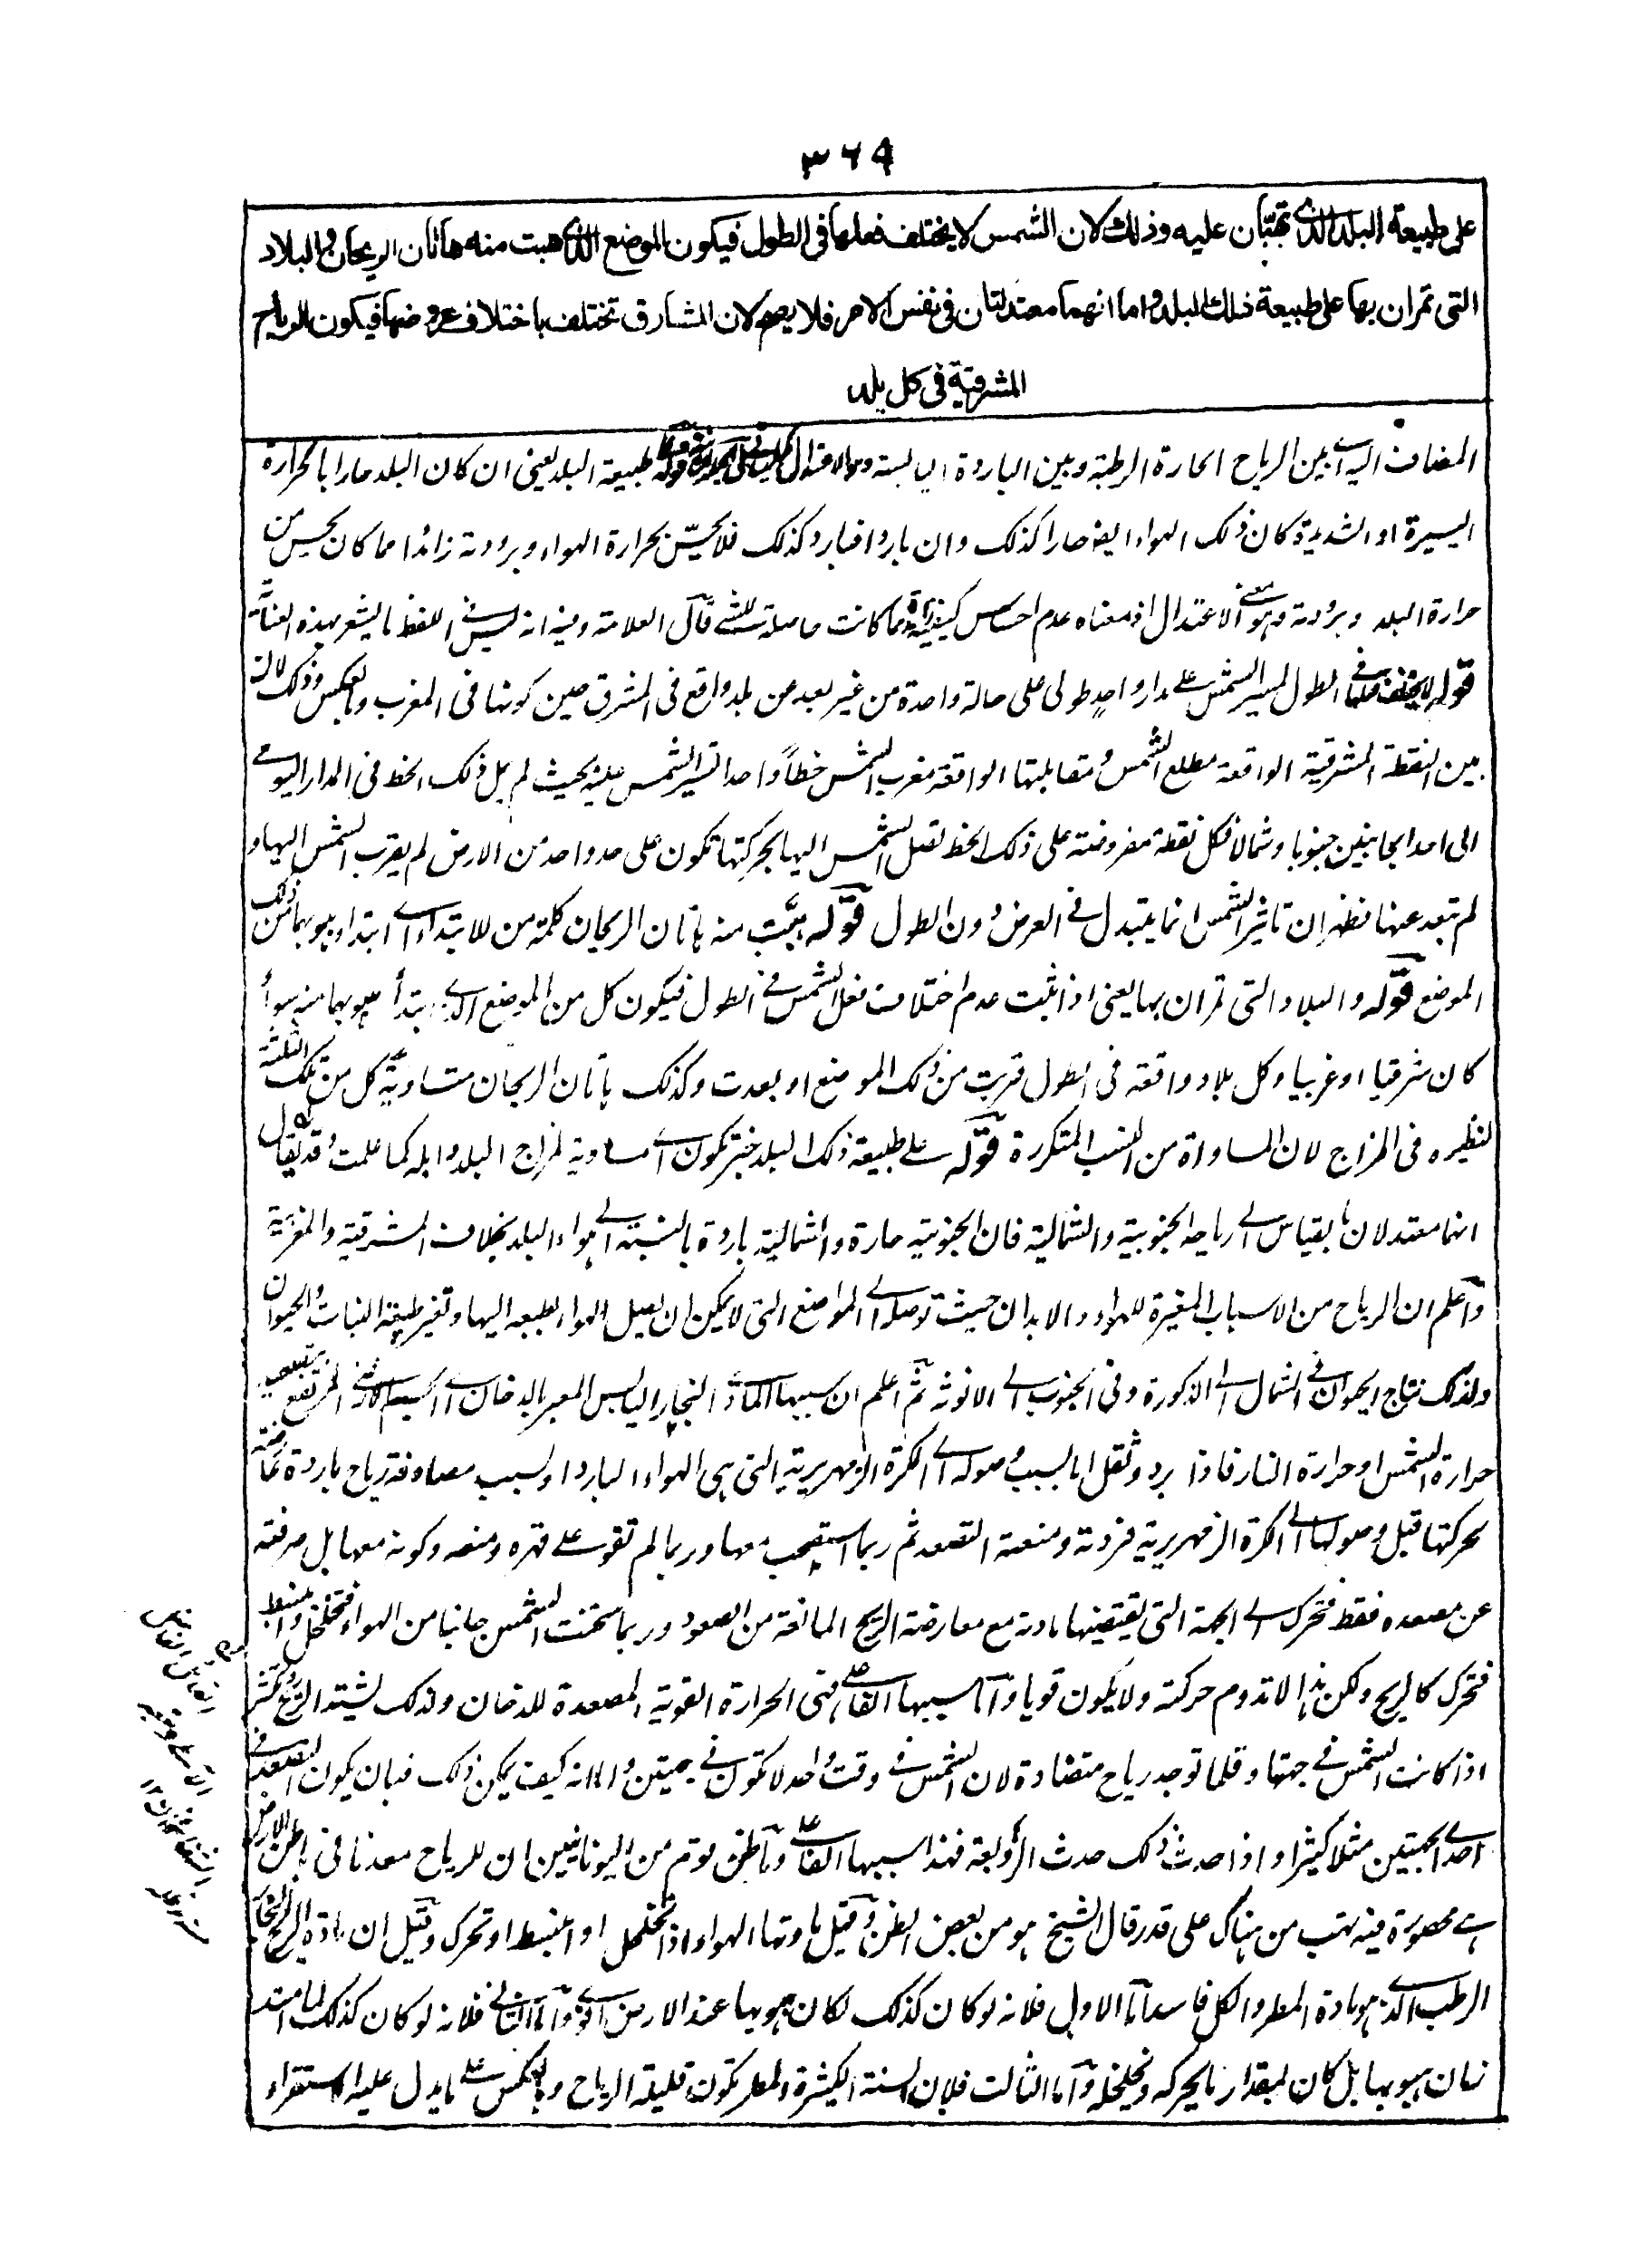 ٣٦٩
على طبيعة البلد الذى تهبّان عليه وذلك لان الشمس لا يختلف فعلها فى الطول فيكون الموضع الذى هبت منه هاتان الريحان والبلاد
التى تمران بها على طبيعة ذلك البلد واما انهما معتدلتان فى نفس الامر فلا يصح لان المشارق تختلف باختلاف عروضها فيكون الرياح
المشرقية فى كل بلد
المضاف اليه اى بين الرياح الحارة الرطبة وبين الباردة اليابسة طبيعة البلد يعنى ان كان البلد حارا بالحرارة
اليسيرة او الشديدة كان ذلك الهواء ايضا حارا كذلك وان باردا فبارد كذلك فلا يحسّ بحرارة الهواء وبرودته زائدا مما كان يحس من
حرارة البلد وبرودته وهو معنى الاعتدال اذ معناه عدم احساس كيفية زائدة مما كانت حاصلة للشئ قال العلامة وفيه انه ليس فى اللفظ ما يشعر بهذه العناية
قوله لا يختلف فعلها فى الطول لمسير الشمس على مدار واحد طولى على حالة واحدة من غير بعد عن بلد واقع فى المشرق حين كونها فى المغرب وبالعكس وذلك لان
بين النقطة المشرقية الواقعة مطلع الشمس ومقابلتها الواقعة مغرب الشمس خطاً واحدا تسير الشمس عليه بحيث لم يل ذلك الخط فى المدار اليومى
الى احد الجانبين جنوبا وشمالا فكل نقطة مفروضة على ذلك الخط تصل الشمس اليها بحركتها تكون على حد واحد من الارض لم يقرب الشمس اليها و
لم تبعد عنها فظهر ان تاثير الشمس انما يتبدل فى العرض دون الطول قوله هبّت منه هاتان الريحان كلمة من للابتداء اى ابتداء هبوبهما من ذلك
الموضع قوله والبلاد التى تمران بها يعنى اذا ثبت عدم اختلاف فعل الشمس فى الطول فيكون كل من الموضع الذى ابتدأ هبوبهما منه سواء
كان شرقيا او غربيا وكل بلاد واقعة فى الطول قربت من ذلك الموضع او بعدت وكذلك هاتان الريحان متساوية كل من تلك الثلثة
لنظيره فى المزاج لان المساواة من النسب المتكررة قوله على طبيعة ذلك البلد خبر تكون اى مساوية لمزاج البلد واهله كما علمت وقد يقال
انهما معتدلان بالقياس الى رياحه الجنوبية والشمالية فان الجنوبية حارة والشمالية باردة بالنسبة الى هواء البلد بخلاف المشرقية والمغربية
واعلم ان الرياح من الاسباب المغيرة للهواء والابدان حيث توصله الى المواضع التى لا يمكن ان يصل الهواء بطبعه اليها وتغير طبيعة النبات والحيوان
ولذلك نتاج الحيوان فى الشمال الى الذكورة وفى الجنوب الى الانوثة ثم اعلم ان سببها المادى البخار اليابس المعبر بالدخان اى المرتفع بتصعيد
حرارة الشمس او حرارة النار فاذا برد وثقل اما بسبب وصوله الى الكرة الزمهريرية التى هى الهواء البارد او بسبب مصادفة رياح باردة عارضة
لحركتها قبل وصولها الى الكرة الزمهريرية فردته ومنعته التصعد ثم ربما استصحب معها وربما لم تقو على قهره ومنعه وكونه معها بل صرفته
عن مصعده فقط فتحرك الى الجهة التى يقتضيها مادته مع معارضة الريح المانعة من الصعود وربما سخنت الشمس جانبا من الهواء فتخلخل وانبسط
فتحرك كالريح ولكن هذا لا تدوم حركته ولا يكون قويا واما سببها الفاعلى فهى الحرارة القوية المصعدة للدخان ولذلك تشتد الريح وتكثر
اذا كانت الشمس فى جهتها وقلما توجد رياح متضادة لان الشمس فى وقت واحد لا تكون فى جهتين واما انه كيف يمكن ذلك فبان يكون التصعد فى
احدى الجهتين مثلا كثيرا واذا حدث ذلك حدث الزوبعة فهذا سببها الفاعلى وما ظن قوم من اليونانيين ان للرياح معدنا فى باطن الارض
هى محصورة فيه تهب من هناك على قدر قال الشيخ هو من بعض الظن وقيل مادتها الهواء اذا تخلخل او انبسط او تحرك وقيل ان مادة الريح البخار
الرطب الذى هو مادة المطر والكل فاسد اما الاول فلانه لو كان كذلك لكان هبوبها عند الارض اقوى واما الثانى فلانه لو كان كذلك لما امتد
زمان هبوبها بل كان بمقدار ما يحركه ويخلخله واما الثالث فلان السنة الكثيرة المطر تكون قليلة الرياح وبالعكس على ما يدل عليه الاستقراء